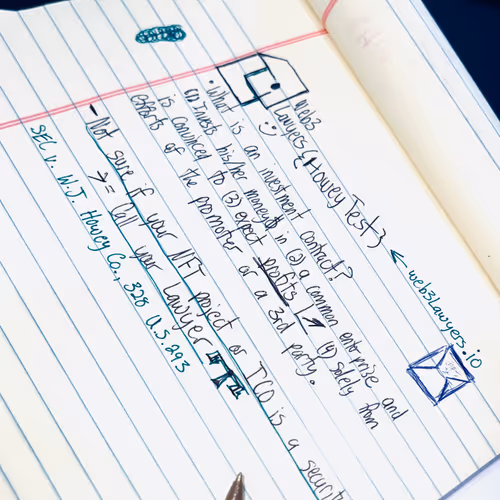 Web3
Lawyers {Howey Test} ← web3lawyers.io
• What is an investment contract?
(1) Invests his/her money in (2) a common enterprize and
is convinced to (3) expect profits (4) solely from
efforts of the promoter or a 3rd party.
- Not sure if your NFT project or ICO is a securit
↳ = Call your Lawyer
SEC v. W.J. Howey Co., 328 U.S. 293